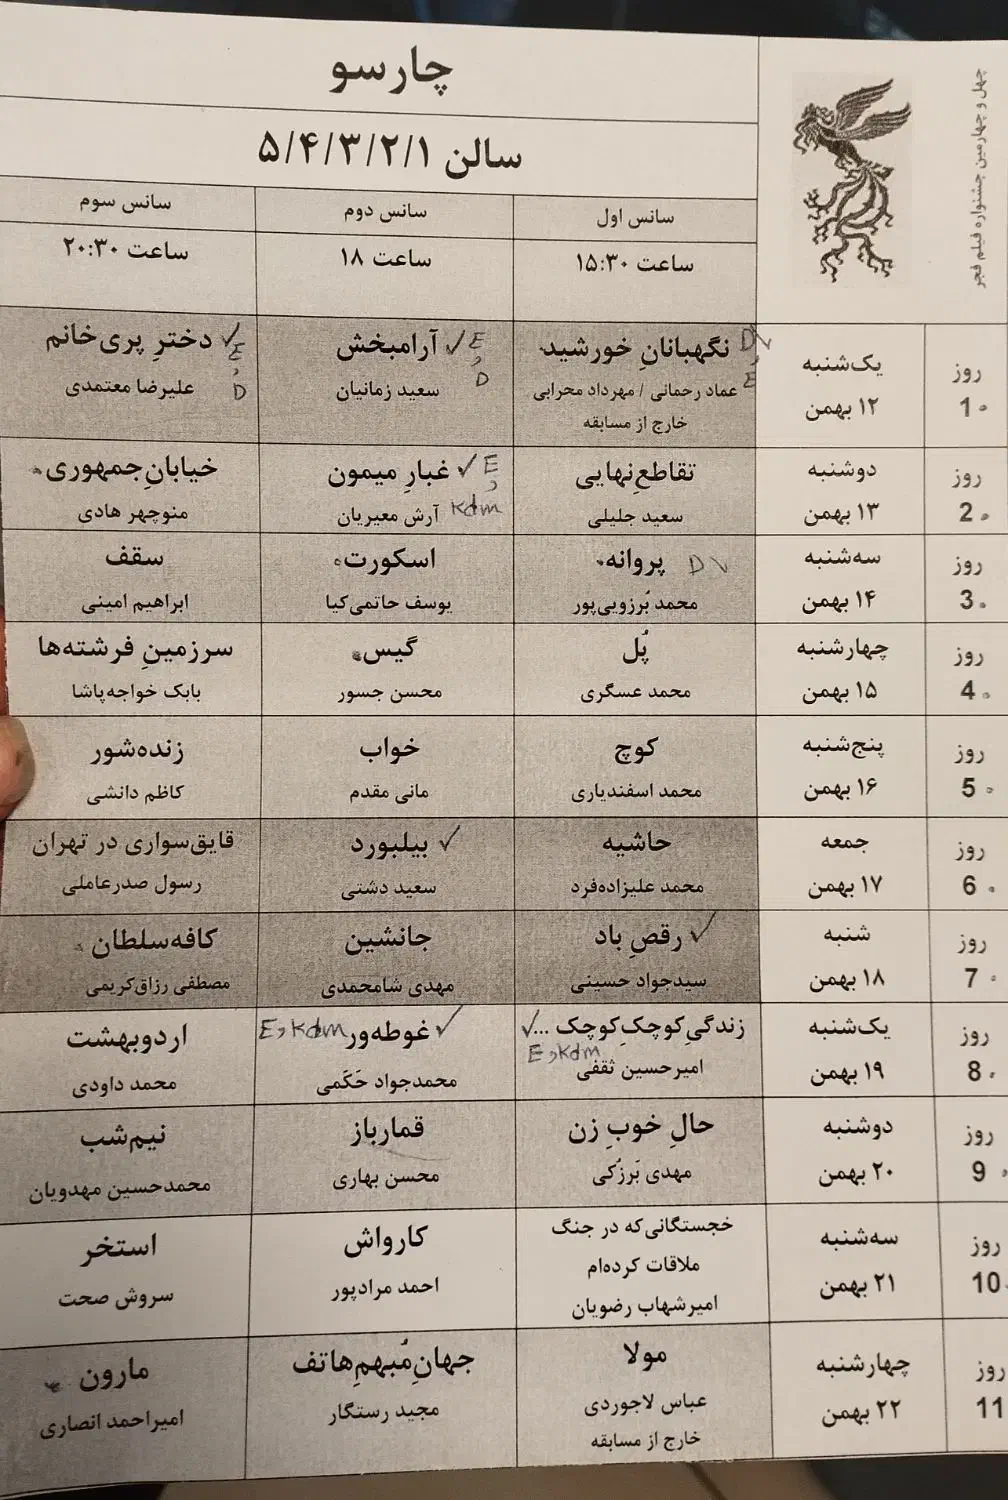 چهل و چهارمین جشنواره فیلم فجر
چارسو
سالن ۵/۴/۳/۲/۱
سانس اول
سانس دوم
سانس سوم
ساعت ۱۵:۳۰
ساعت ۱۸
ساعت ۲۰:۳۰
روز 1
یک‌شنبه
۱۲ بهمن
نگهبانانِ خورشید
D و E
عماد رحمانی / مهرداد محرابی
خارج از مسابقه
✓ آرامبخش
E و D
سعید زمانیان
✓ دخترِ پری‌خانم
E و D
علیرضا معتمدی
روز 2
دوشنبه
۱۳ بهمن
تقاطعِ‌نهایی
سعید جلیلی
✓ غبارِ میمون
E و kdm
آرش معیریان
خیابانِ‌جمهوری
منوچهر هادی
روز 3
سه‌شنبه
۱۴ بهمن
پروانه
D
محمد بُرزویی‌پور
اسکورت
یوسف حاتمی‌کیا
سقف
ابراهیم امینی
روز 4
چهارشنبه
۱۵ بهمن
پُل
محمد عسگری
گیس
محسن جسور
سرزمینِ فرشته‌ها
بابک خواجه‌پاشا
روز 5
پنج‌شنبه
۱۶ بهمن
کوچ
محمد اسفندیاری
خواب
مانی مقدم
زنده‌شور
کاظم دانشی
روز 6
جمعه
۱۷ بهمن
حاشیه
محمد علیزاده‌فرد
✓ بیلبورد
سعید دشتی
قایق‌سواری در تهران
رسول صدرعاملی
روز 7
شنبه
۱۸ بهمن
✓ رقصِ باد
سیدجواد حسینی
جانشین
مهدی شامحمدی
کافه‌سلطان
مصطفی رزاق‌کریمی
روز 8
یک‌شنبه
۱۹ بهمن
زندگیِ‌کوچکِ‌کوچک ... ✓
E و kdm
امیرحسین ثقفی
✓ غوطه‌ور
E و kdm
محمدجواد حَکَمی
اردوبهشت
محمد داودی
روز 9
دوشنبه
۲۰ بهمن
حالِ خوبِ زن
مهدی بَرزُکی
قمارباز
محسن بهاری
نیم‌شب
محمدحسین مهدویان
روز 10
سه‌شنبه
۲۱ بهمن
خجستگانی‌که در جنگ
ملاقات کرده‌ام
امیرشهاب رضویان
کارواش
احمد مرادپور
استخر
سروش صحت
روز 11
چهارشنبه
۲۲ بهمن
مولا
عباس لاجوردی
خارج از مسابقه
جهانِ‌مُبهمِ‌هاتف
مجید رستگار
مارون
امیراحمد انصاری